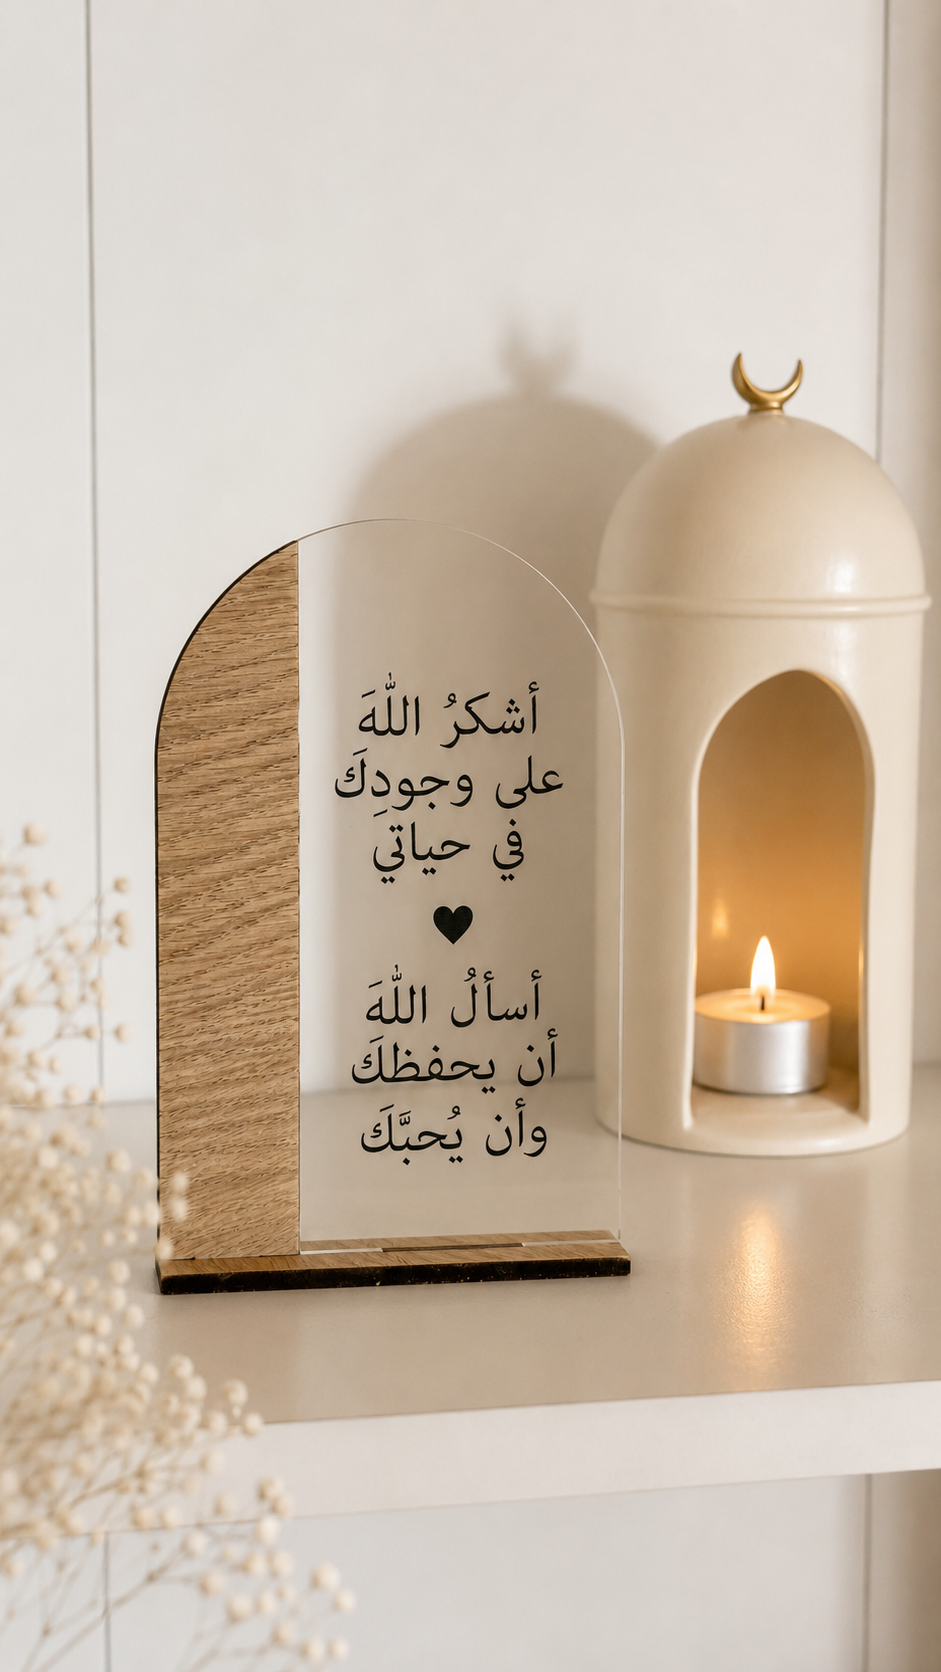 أشكرُ اللّٰهَ
على وجودِكَ
في حياتي
أسألُ اللّٰهَ
أن يحفظكَ
وأن يُحبَّكَ